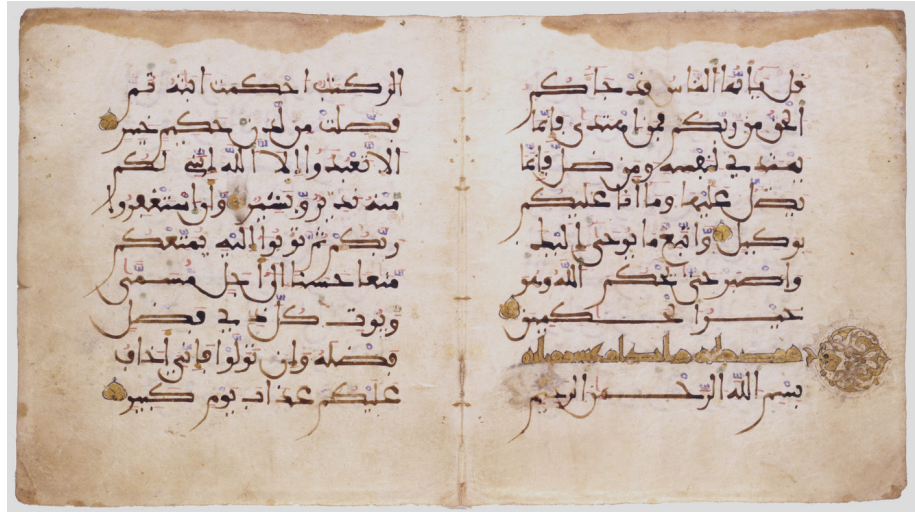 قل يايها الناس قد جاكم
الحق من ربكم فمن اهتدى فإنما
يهتدي لنفسه ومن ضل فإنما
يضل عليها وما أنا عليكم
بوكيل واتبع ما يوحى إليك
واصبر حتى يحكم الله وهو
خير الحكمين
بسم الله الرحمن الرحيم
الر كتب احكمت ايته ثم
فصلت من لدن حكيم خبير
ألا تعبدوا إلا الله إنني لكم
منه نذير وبشير وأن استغفروا
ربكم ثم توبوا إليه يمتعكم
متعا حسنا إلى أجل مسمى
ويوت كل ذي فضل
فضله وإن تولوا فإني أخاف
عليكم عذاب يوم كبير